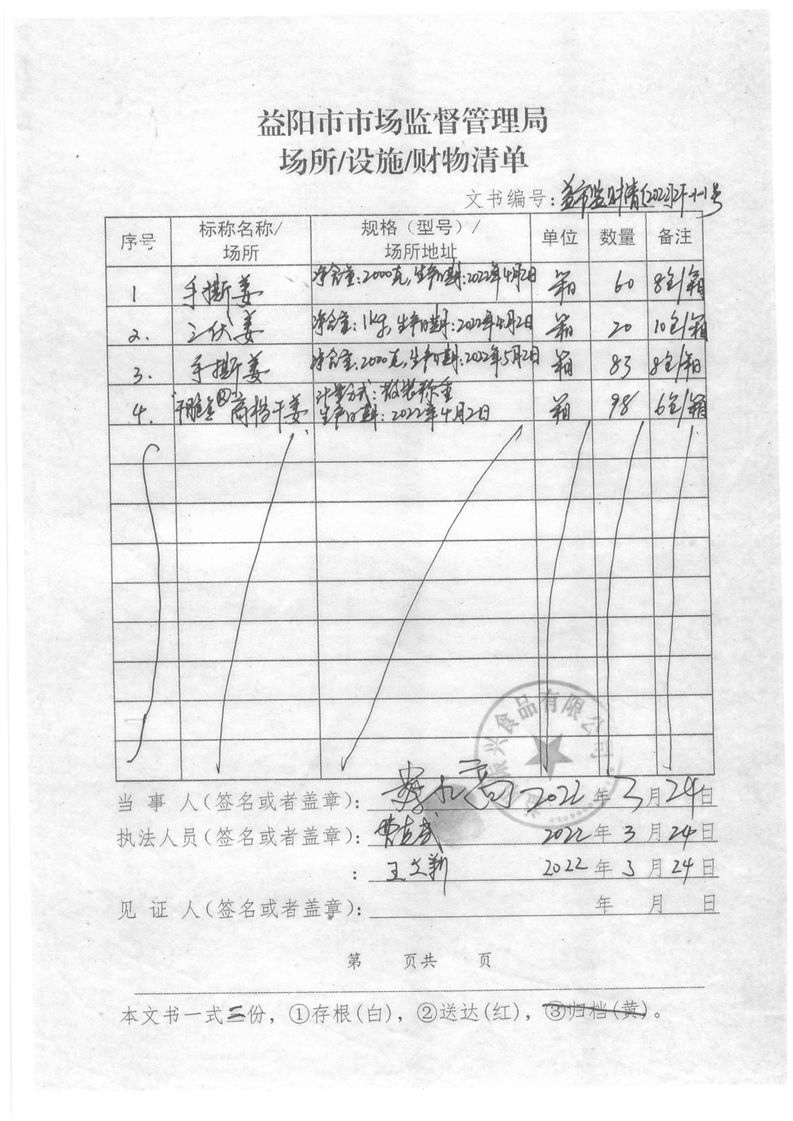 益阳市市场监督管理局
场所/设施/财物清单
文书编号:益市监财清[2022]
序号 标称名称/场所 规格(型号)/场所地址 单位 数量 备注
1 手撕姜 净含量:2000克,生产日期:2022年4月2日 箱 60 8包/箱
2. 三伏姜 净含量:1kg,生产日期:2022年4月2日 箱 20 10包/箱
3. 手撕姜 净含量:2000克,生产日期:2022年5月2日 箱 83 8包/箱
4. 干姜 计量方式:散装称重 生产日期:2022年4月2日 箱 98 6包/箱
振兴食品有限公司
当事人(签名或者盖章): 2022年3月24日
执法人员(签名或者盖章): 2022年3月24日
: 王文新 2022年3月24日
见证人(签名或者盖章): 年 月 日
第 页共 页
本文书一式二份,①存根(白),②送达(红),③归档(黄)。